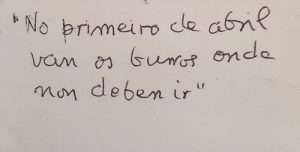 "No primeiro de abril
van os burros onde
non deben ir"